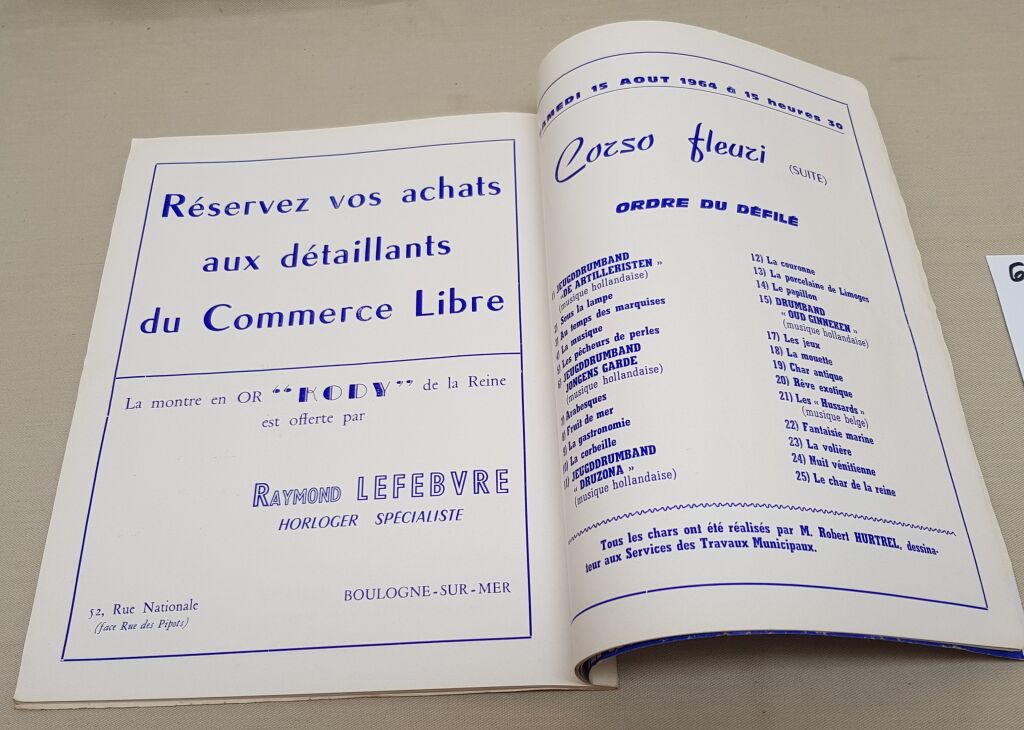 Réservez vos achats
aux détaillants
du Commerce Libre
La montre en OR “KODY” de la Reine
est offerte par
RAYMOND LEFEBVRE
HORLOGER SPÉCIALISTE
52, Rue Nationale
(face Rue des Pipots)
BOULOGNE-SUR-MER
SAMEDI 15 AOUT 1964 à 15 heures 30
Corso fleuri
(SUITE)
ORDRE DU DÉFILÉ
1) JEUGDDRUMBAND
“DE ARTILLERISTEN »
(musique hollandaise)
2) Sous la lampe
3) Au temps des marquises
4) La musique
5) Les pêcheurs de perles
6) JEUGDDRUMBAND
JONGENS GARDE
(musique hollandaise)
7) Arabesques
8) Fruit de mer
9) La gastronomie
10) La corbeille
11) JEUGDDRUMBAND
“ DRUZONA »
(musique hollandaise)
12) La couronne
13) La porcelaine de Limoges
14) Le papillon
15) DRUMBAND
“ OUD GINNEKEN »
(musique hollandaise)
17) Les jeux
18) La mouette
19) Char antique
20) Rêve exotique
21) Les « Hussards »
(musique belge)
22) Fantaisie marine
23) La volière
24) Nuit vénitienne
25) Le char de la reine
Tous les chars ont été réalisés par M. Robert HURTREL, dessina-
teur aux Services des Travaux Municipaux.